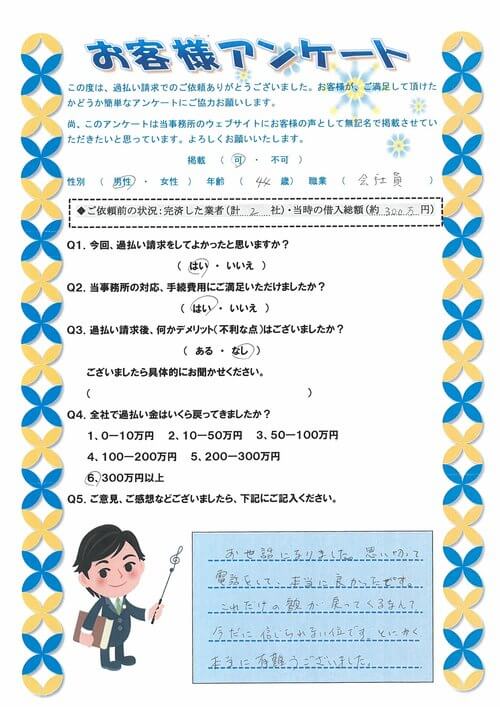 お客様アンケート
この度は、過払い請求でのご依頼ありがとうございました。お客様が、ご満足して頂けた
かどうか簡単なアンケートにご協力お願いします。
尚、このアンケートは当事務所のウェブサイトにお客様の声として無記名で掲載させてい
ただきたいと思っています。よろしくお願いいたします。
掲載 ( 可 ・ 不可 )
性別 ( 男性 ・ 女性 ) 年齢 ( 44 歳) 職業 ( 会社員 )
◆ご依頼前の状況:完済した業者(計 2 社)・当時の借入総額(約 300万 円)
Q1. 今回、過払い請求をしてよかったと思いますか?
( はい ・ いいえ )
Q2. 当事務所の対応、手続費用にご満足いただけましたか?
( はい ・ いいえ )
Q3. 過払い請求後、何かデメリット(不利な点)はございましたか?
( ある ・ なし )
ございましたら具体的にお聞かせください。
( )
Q4. 全社で過払い金はいくら戻ってきましたか?
1、0ー10万円 2、10ー50万円 3、50ー100万円
4、100ー200万円 5、200ー300万円
6、300万円以上
Q5. ご意見、ご感想などございましたら、下記にご記入ください。
お世話になりました。思い切って
電話をして、本当に良かったです。
これだけの額が戻ってくるなんて
今だに信じられない位です。とにかく
本当に有難うございました。